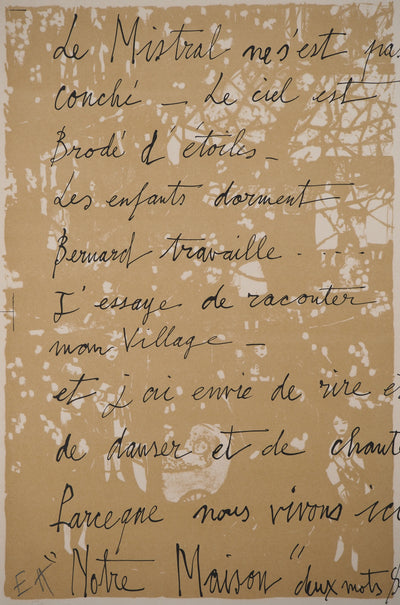 Le Mistral ne s'est pas
couché — Le ciel est
Brodé d'étoiles —
Les enfants dorment
Bernard travaille . . . .
J'essaye de raconter
mon Village —
et j'ai envie de rire et
de danser et de chante
Parceque nous vivons ici
"Notre Maison" deux mots
EA